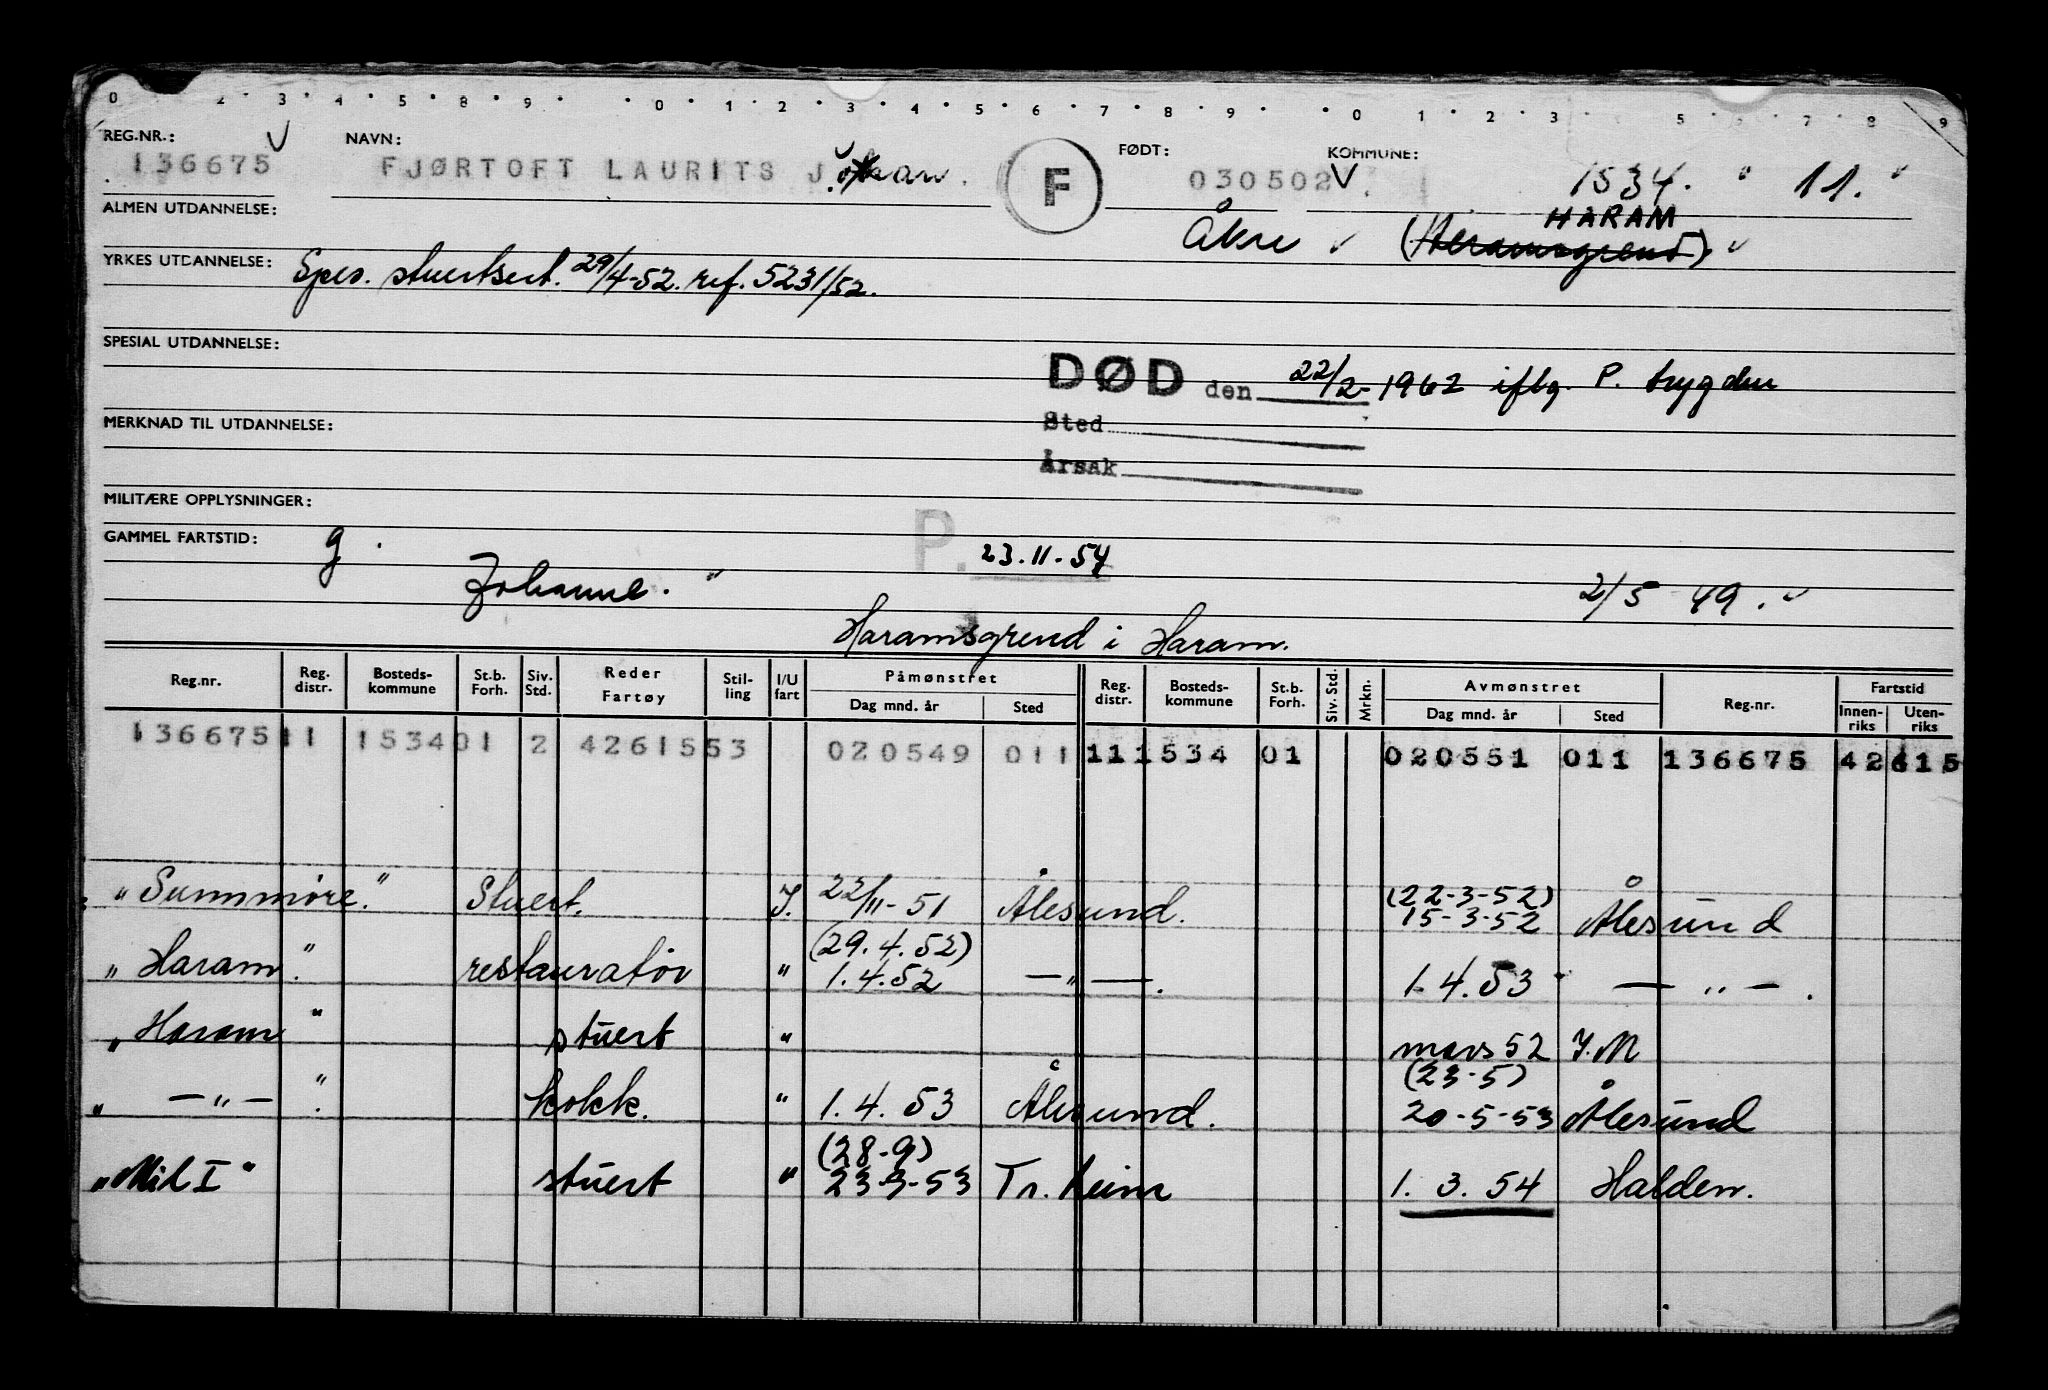 0 2 3 4 5 8 9 0 1 2 3 4 5 6 7 8 9 0 1 2 3 5 6 7 8 9
REG.NR.: NAVN: FØDT: KOMMUNE:
136675 FJØRTOFT LAURITS Johan. F 030502 1534. " 11. "
ALMEN UTDANNELSE: Åkre (Haramsgrend) HARAM
YRKES UTDANNELSE: Spes. stuertsert. 29/4-52. ref. 5231/52.
SPESIAL UTDANNELSE:
DØD den 22/2-1962 iflg. P. trygden
MERKNAD TIL UTDANNELSE: Sted
Årsak
MILITÆRE OPPLYSNINGER:
GAMMEL FARTSTID: g. P. 23.11.54
Johanne. " 2/5 49.
Haramsgrend i Haram.
Reg.nr. Reg. distr. Bosteds-kommune St.b. Forh. Siv. Std. Reder Fartøy Stil-ling I/U fart Påmønstret Dag mnd. år Sted Reg. distr. Bosteds-kommune St.b. Forh. Siv. Std. Mrkn. Avmønstret Dag mnd. år Sted Reg.nr. Fartstid Innen-riks Uten-riks
136675 11 1534 01 2 4261553 020549 011 11 1534 01 020551 011 136675 42615
"Sunnmøre." Stuert. I. 22/11-51 Ålesund. (22-3-52) 15-3-52 Ålesund
"Haram." restauratør " (29.4.52) 1.4.52 —"—. 1.4.53 —"—.
"Haram" stuert " mars 52 I.M
" —"— ". kokk. " 1.4.53 Ålesund. (23-5) 20-5-53 Ålesund
"Mil I" stuert " (28-9) 23-9-53 Tr.heim 1.3.54 Halden.